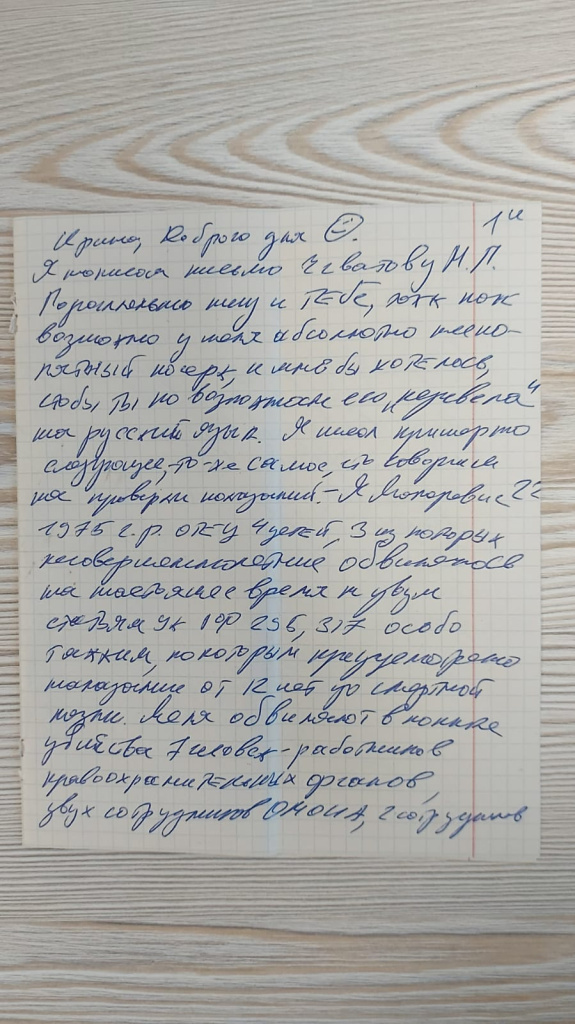 1й
Ирина, Доброго дня
Я написал письмо Чеватову Н.П.
Параллельно ему и тебе, так как
возможно у меня абсолютно непо-
нятный почерк, и мне бы хотелось,
чтобы ты по возможности его „перевела"
на русский язык. Я писал примерно
следующее, то-же самое, что говорил и
на проверке показаний. - Я
1975 г.р. отец 4 детей, 3 из которых
несовершеннолетние, обвиняюсь
на настоящее время по двум
статьям УК РФ 296, 317 особо
тяжким, по которым предусмотрено
наказание от 12 лет до смертной
казни. Меня обвиняют в
убийства 7 человек - работников
правоохранительных органов,
двух сотрудников ОМОНА, 2 сотрудников